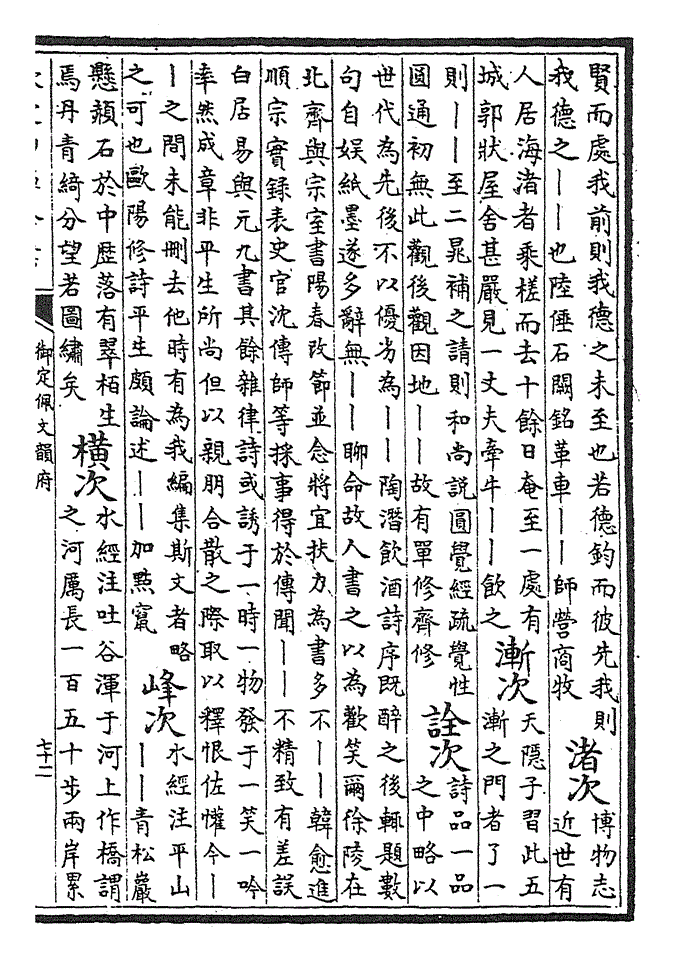 賢而處我前則我德之未至也若德鈞而彼先我則
我德之丨丨也陸倕石闕銘革車丨丨師營商牧
渚次
博物志
近世有
人居海渚者乘槎而去十餘日奄至一處有
城郭狀屋舍甚嚴見一丈夫牽牛丨丨飲之
漸次
天隱子習此五
漸之門者了一
則丨丨至二晁補之請則和尚説圓覺經疏覺性
圓通初無此觀後觀因地丨丨故有單修齊修
詮次
詩品一品
之中略以
世代為先後不以優劣為丨丨陶潛飲酒詩序既醉之後輒題數
句自娱紙墨遂多辭無丨丨聊命故人書之以為歡笑爾徐陵在
北齊與宗室書陽春改節並念將宜扶力為書多不丨丨韓愈進
順宗實録表史官沈傳師等採事得於傳聞丨丨不精致有差誤
白居易與元九書其餘雜律詩或誘于一時一物發于一笑一吟
率然成章非平生所尚但以親朋合散之際取以釋恨佐懽今丨
丨之間未能刪去他時有為我編集斯文者略
之可也歐陽修詩平生頗論述丨丨加㸃竄
峰次
水經注平山
丨丨青松巖
懸頽石於中歴落有翠栢生
焉丹青綺分望若圖繡矣
橫次
水經注吐谷渾于河上作橋謂
之河厲長一百五十步兩岸累
御定佩文韻府
七十二